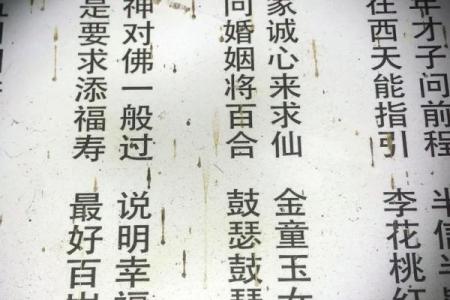 年才子问前程 半信半
在西天能指引 李花桃红
家诚心来求仙 金童玉女
问婚姻将百合 鼓瑟鼓琴
神对佛一般过 说明幸福
是要求添福寿 最好百岁